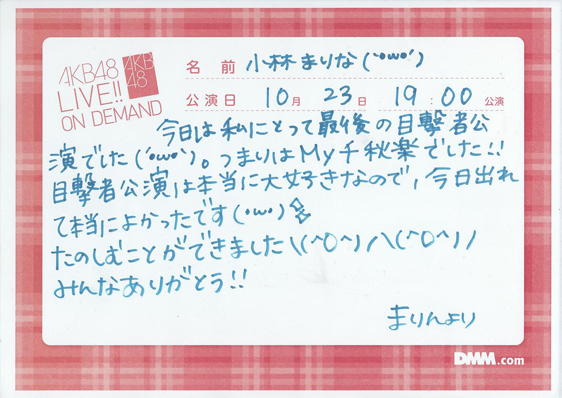 AKB48
LIVE!!
ON DEMAND
AKB
48
名前 小林まりな(´・ω・`)
公演日 10月 23日 19:00 公演
今日は私にとって最後の目撃者公
演でした(´・ω・`)。つまりはMy千秋楽でした!!
目撃者公演は本当に大好きなので、今日出れ
て本当によかったです(・ω・)
たのしむことができました\(^O^)/\(^O^)/
みんなありがとう!!
まりんより
DMM.com